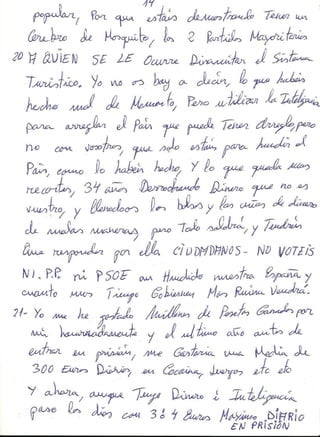 14
popular, Por que estáis demostrando Tener un
Cerebro de Mosquito, los 2 Partidos Mayoritarios
20 A QUIEN SE LE Ocurre Dinamitar el Sistema
Turistico. Yo no os voy a decir, lo que habéis
hecho mal de Momento, Pero utilizar la Inteligencia
para arreglar el País que puede Tener Arreglo, pero
no con vosotros, que solo estáis para hundir el
País, como lo habéis hecho, Y lo que queda mas
recortes, 34 años Derrochando Dinero que no es
vuestro, y llenadoos los bolsos y las de dinero
de malas maneras, pero Todo saldrá, y Tendreis
que responder por ello CIUDADANOS - NO VOTEIS
NI. P.P. ni PSOE an Hundido nuestra España y
cuanto mas Tiempo Gobiernen Mas Ruina Vendrá.
21- Yo me he gastado Millones de Pesetas Ganados por
mi, honradamente y el ultimo año antes de
entrar en prisión, me Gastaria una Media de
300 Euros Diarios, en Cocaina, Juergas etc etc
Y ahora, aunque Tengo Dinero é Inteligencia
paso los dias con 3 ó 4 Euros Maximo DIARIO
EN PRISIÓN